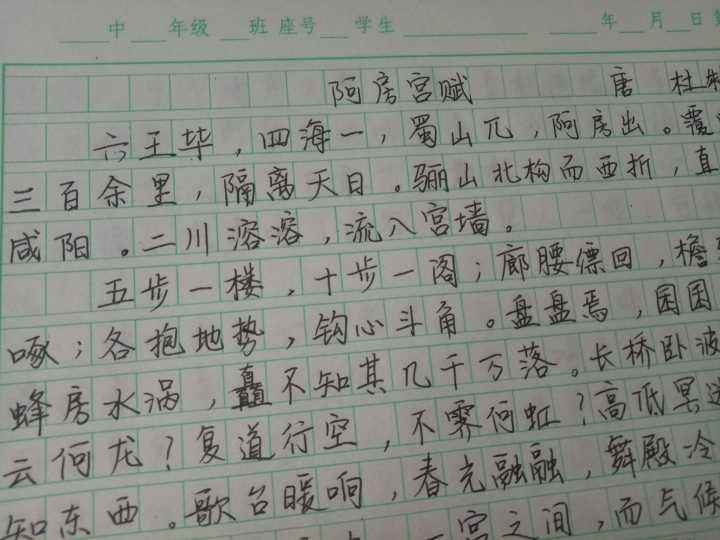 中 年级 班 座号 学生 年 月 日
阿房宫赋 唐 杜牧
六王毕，四海一，蜀山兀，阿房出。覆
三百余里，隔离天日。骊山北构而西折，直
咸阳。二川溶溶，流入宫墙。
五步一楼，十步一阁；廊腰缦回，檐
啄；各抱地势，钩心斗角。盘盘焉，囷囷
蜂房水涡，矗不知其几千万落。长桥卧波
云何龙？复道行空，不霁何虹？高低冥迷
知东西。歌台暖响，春光融融，舞殿冷
一宫之间，而气候